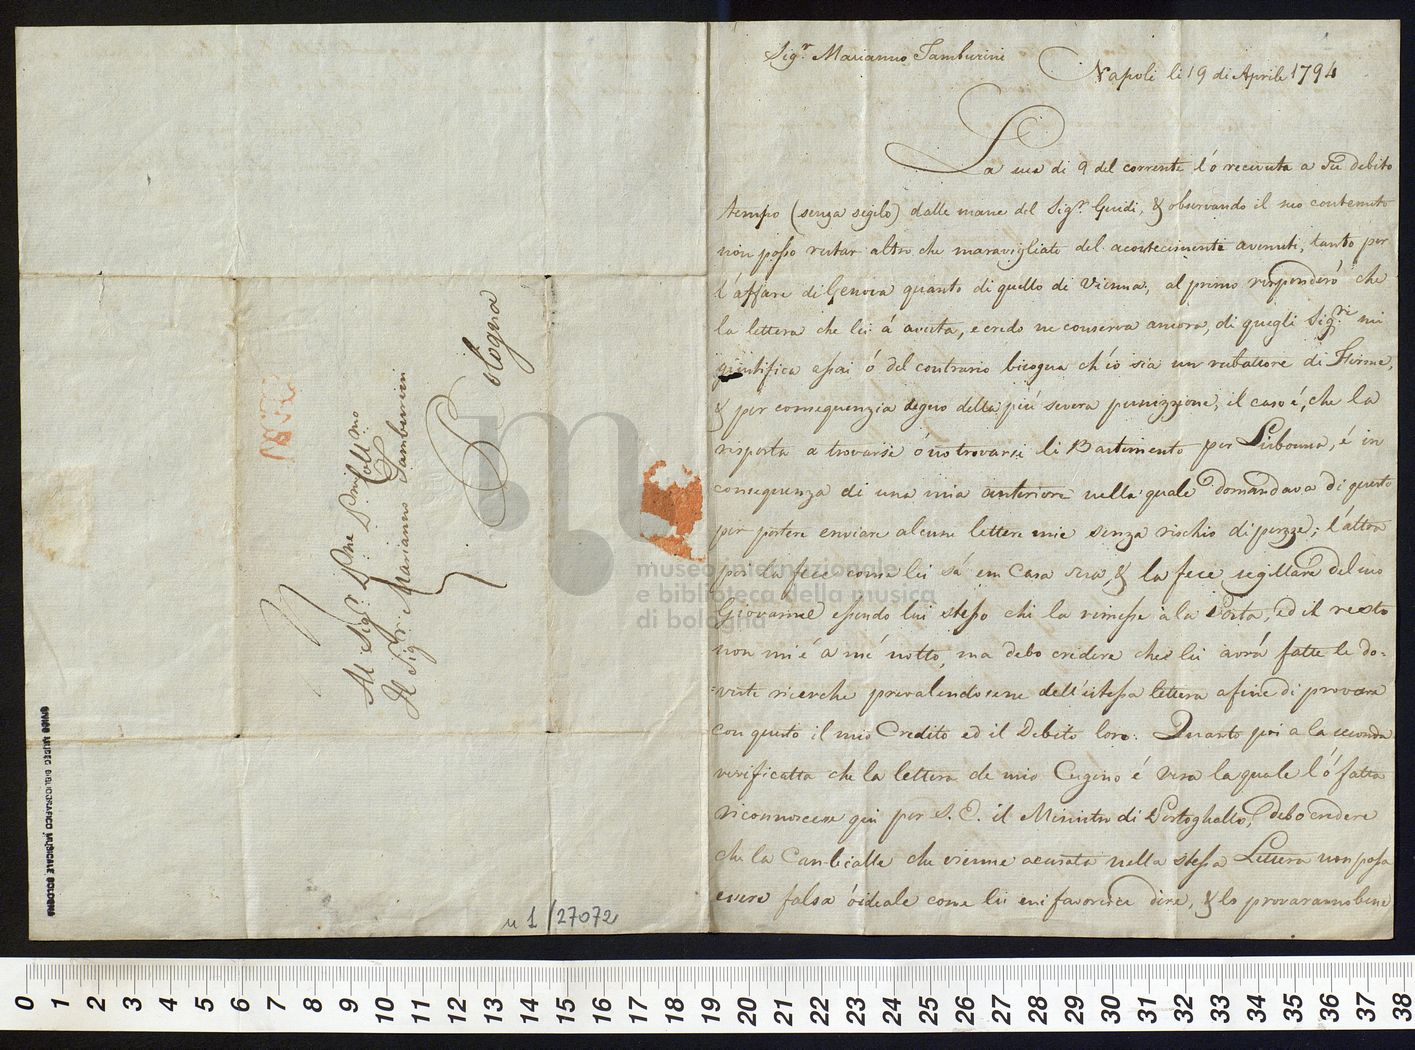 Al Sig.r Pne Dne Coll.mo
Il Sig.r Marianno Tamburini
Bologna
n 1/27072
CIVICO MUSEO BIBLIOGRAFICO MUSICALE BOLOGNA
Sig.r Marianno Tamburini
Napoli li 19 di Aprile 1794
La sua di 9 del corrente l'ó receuuta a su debito
tempo (senza segilo) dalle mane del Sig.r Guidi, & observando il suo contenuto
non posso restar altro che maravigliato del acontecimento avenuti, tanto per
l'affare di Genova quanto di quello di Vienna, al primo responderó che
la lettera che lei á avuta, e credo ne conserva ancora, di quegli Sig.ri mi
giustifica assai ó del contrario bisogna ch'io sia un rubatore di Firme,
& per consequenzia degno della piú severa punizzione, il caso é, che la
risposta a trovarsi ó no trovarsi li Bastimento per Lisbonna, é in
consequenza di una mia anteriore nella quale domandava di questo
per potere enviare alcune lettere mie senza rischio di perzze; l'altra
poi la fece come lei sá in Casa sua & la fece segillare del suo
Giovanne essendo lui stesso chi la rimesse a la Posta, ed il resto
non mi é á mé notto, ma debo credere che lei avrá fatte le do-
=vute ricerche prevalendosene dell'istessa lettera afine di provare
con questo il mio Credito ed il Debito loro. Quanto poi a la seconda
verificatta ché la lettera de mio Cugino é vera la quale l'ó fatta
riconnoscere qui per S. E. il Ministro di Portoghallo, debo credere
che la Cambialle che vienne acusata nella stessa Lettera non possa
essere falsa ó ideale come lei mi favorisca dire, & lo provaranno bene
museo internazionale
e biblioteca della musica
di bologna
0 1 2 3 4 5 6 7 8 9 10 11 12 13 14 15 16 17 18 19 20 21 22 23 24 25 26 27 28 29 30 31 32 33 34 35 36 37 38